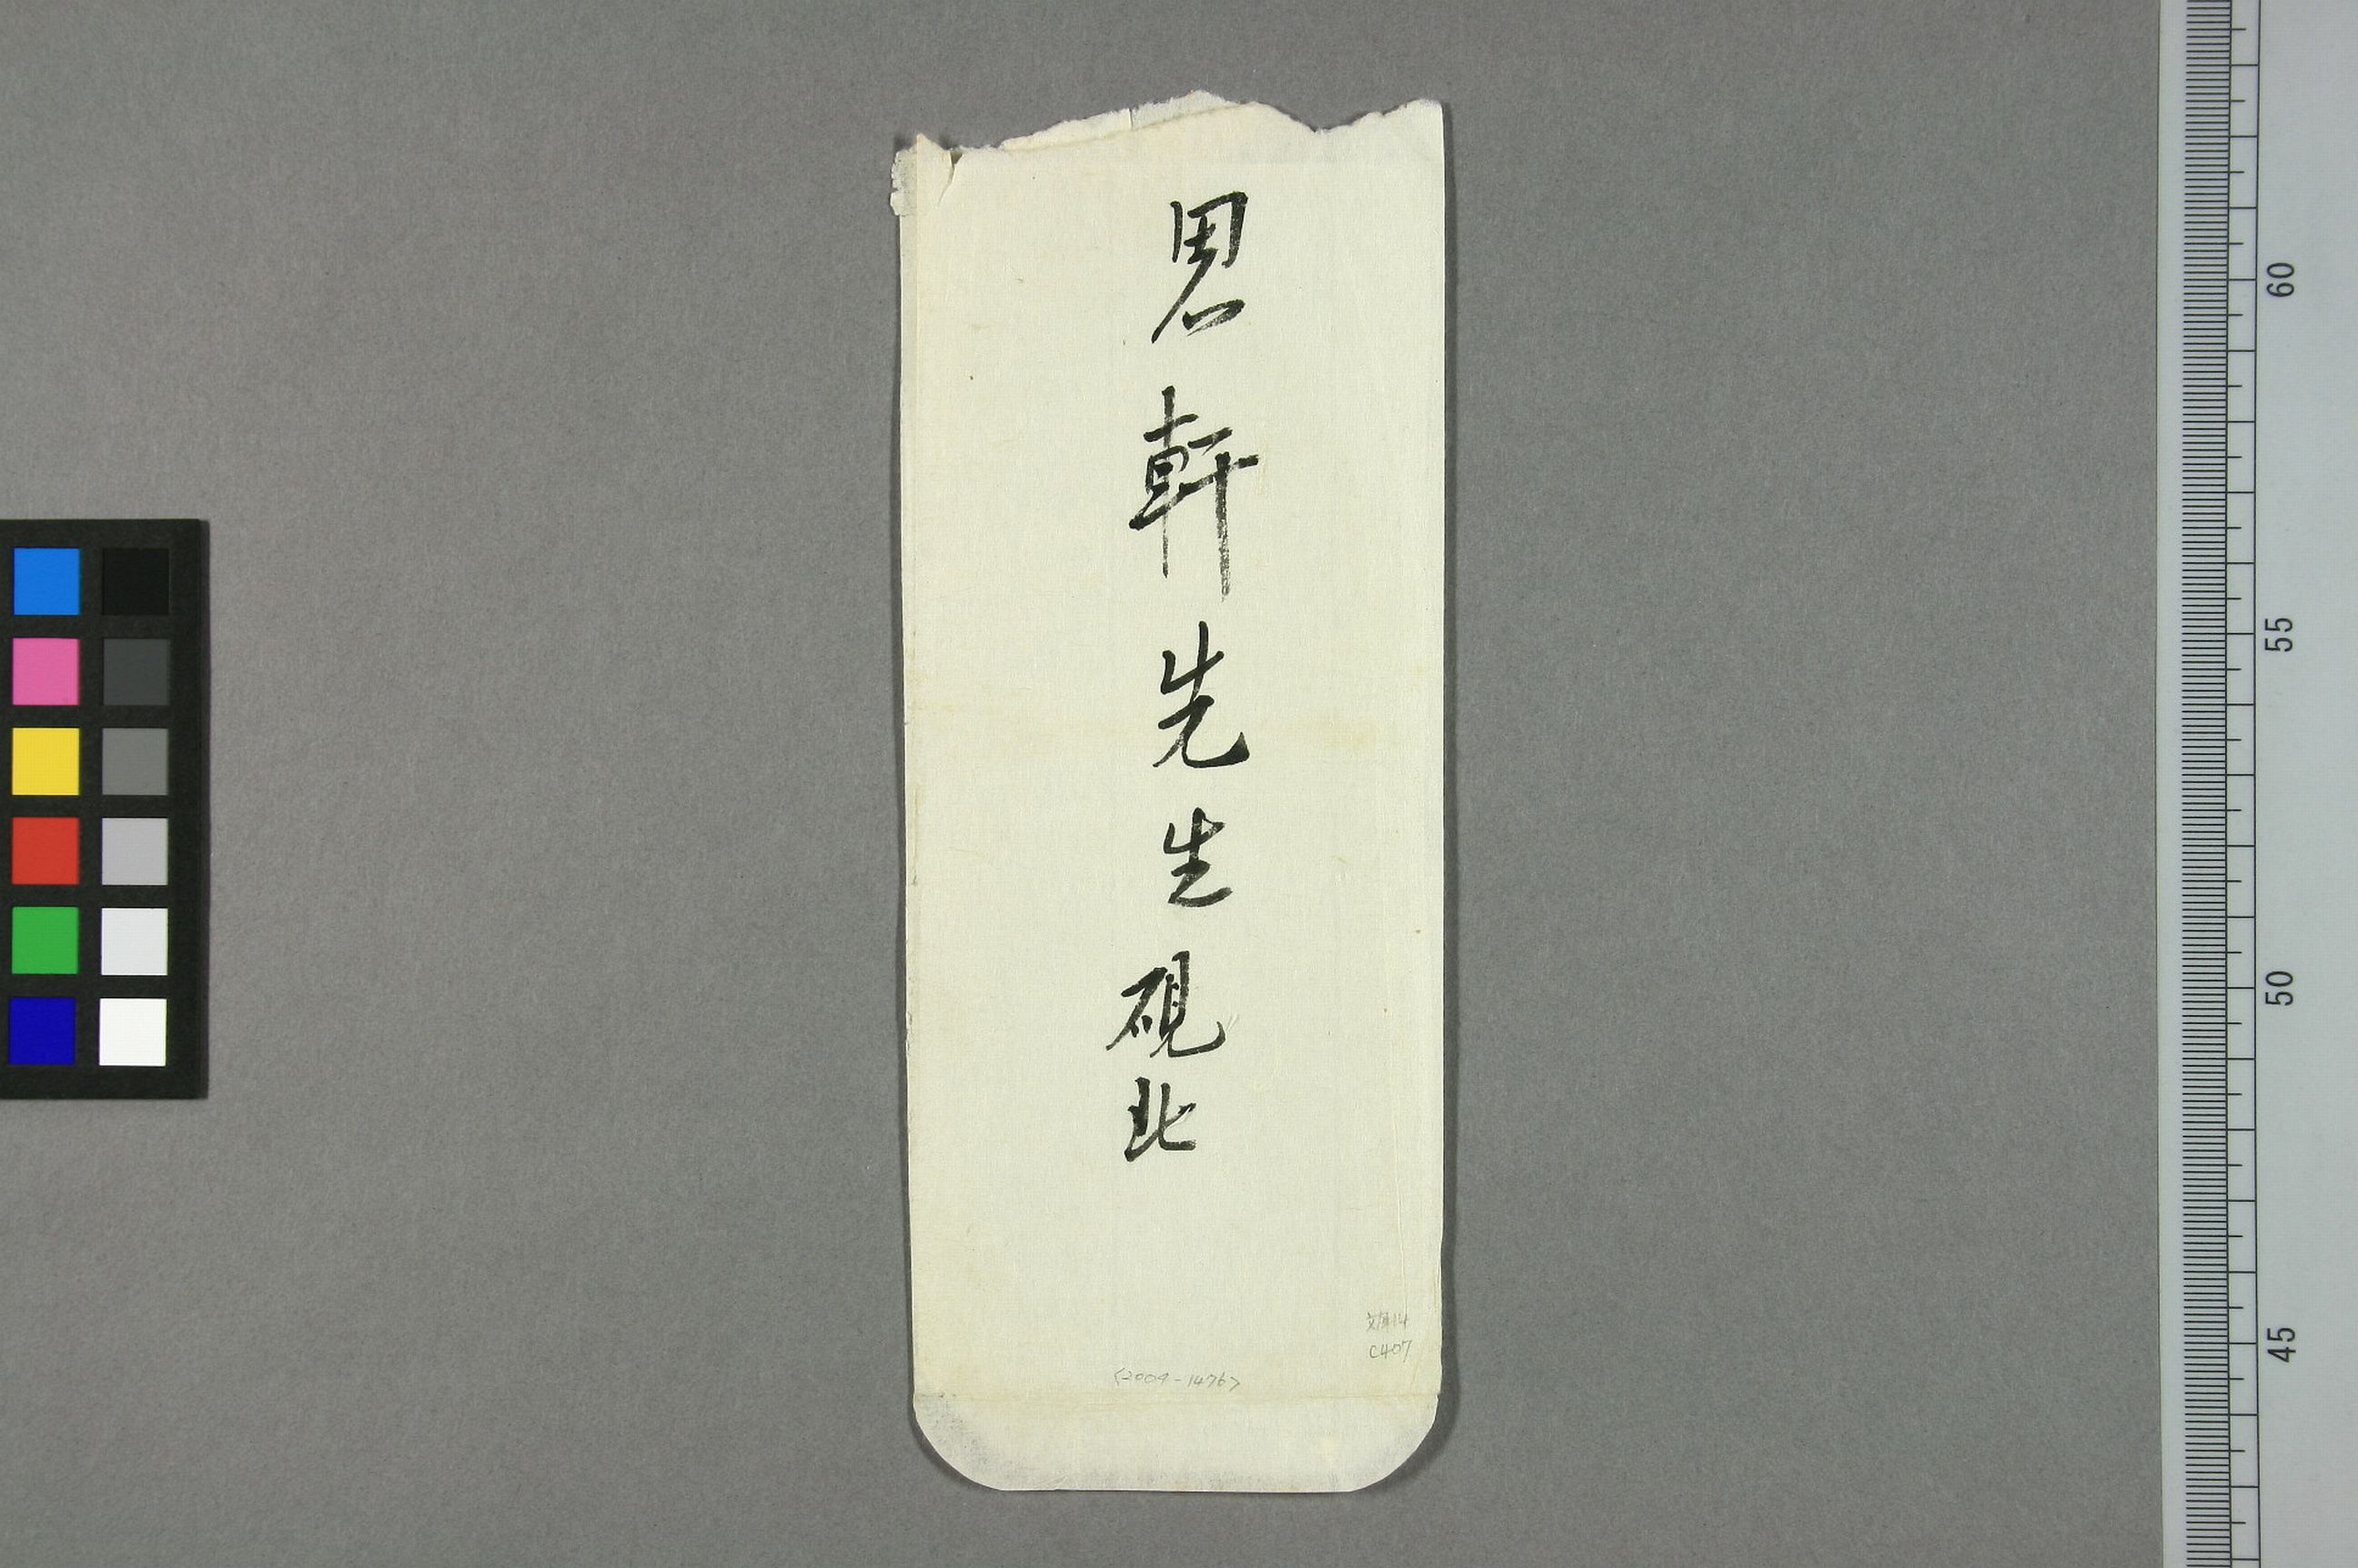 思軒先生硯北
文庫14
C407
<2009-1476>
60
55
50
45